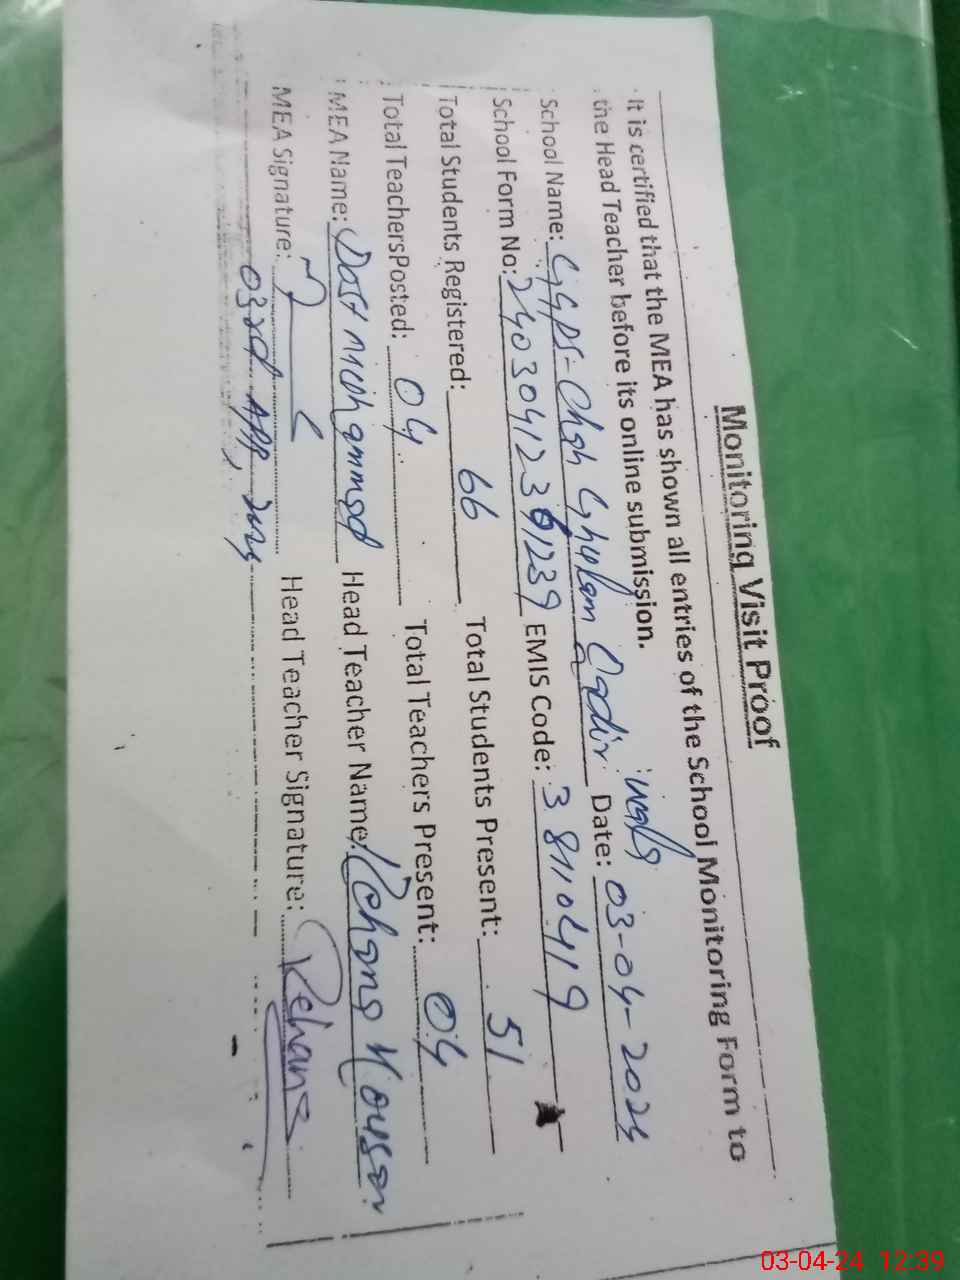 Monitoring Visit Proof
It is certified that the MEA has shown all entries of the School Monitoring Form to
the Head Teacher before its online submission.
wala
School Name: GGPS-Chah Ghulam Qadir Date: 03-04-2024
School Form No: EMIS Code: 38110419
Total Students Registered: 66 Total Students Present: 51
Total TeachersPosted: 04 Total Teachers Present: 04
MEA Name: Dost muhammad Head Teacher Name: Rehana
MEA Signature: Head Teacher Signature: Rehana
03rd APR, 2024
03-04-24 12:39